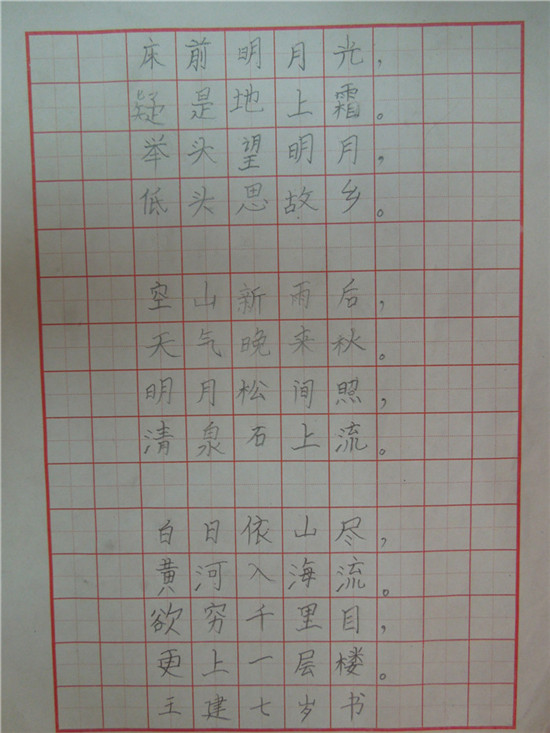 床前明月光，
疑是地上霜。
举头望明月，
低头思故乡。
空山新雨后，
天气晚来秋。
明月松间照，
清泉石上流。
白日依山尽，
黄河入海流。
欲穷千里目，
更上一层楼。
王建七岁书